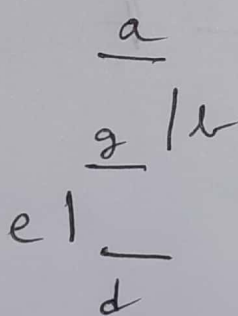 a
b
g
e
d